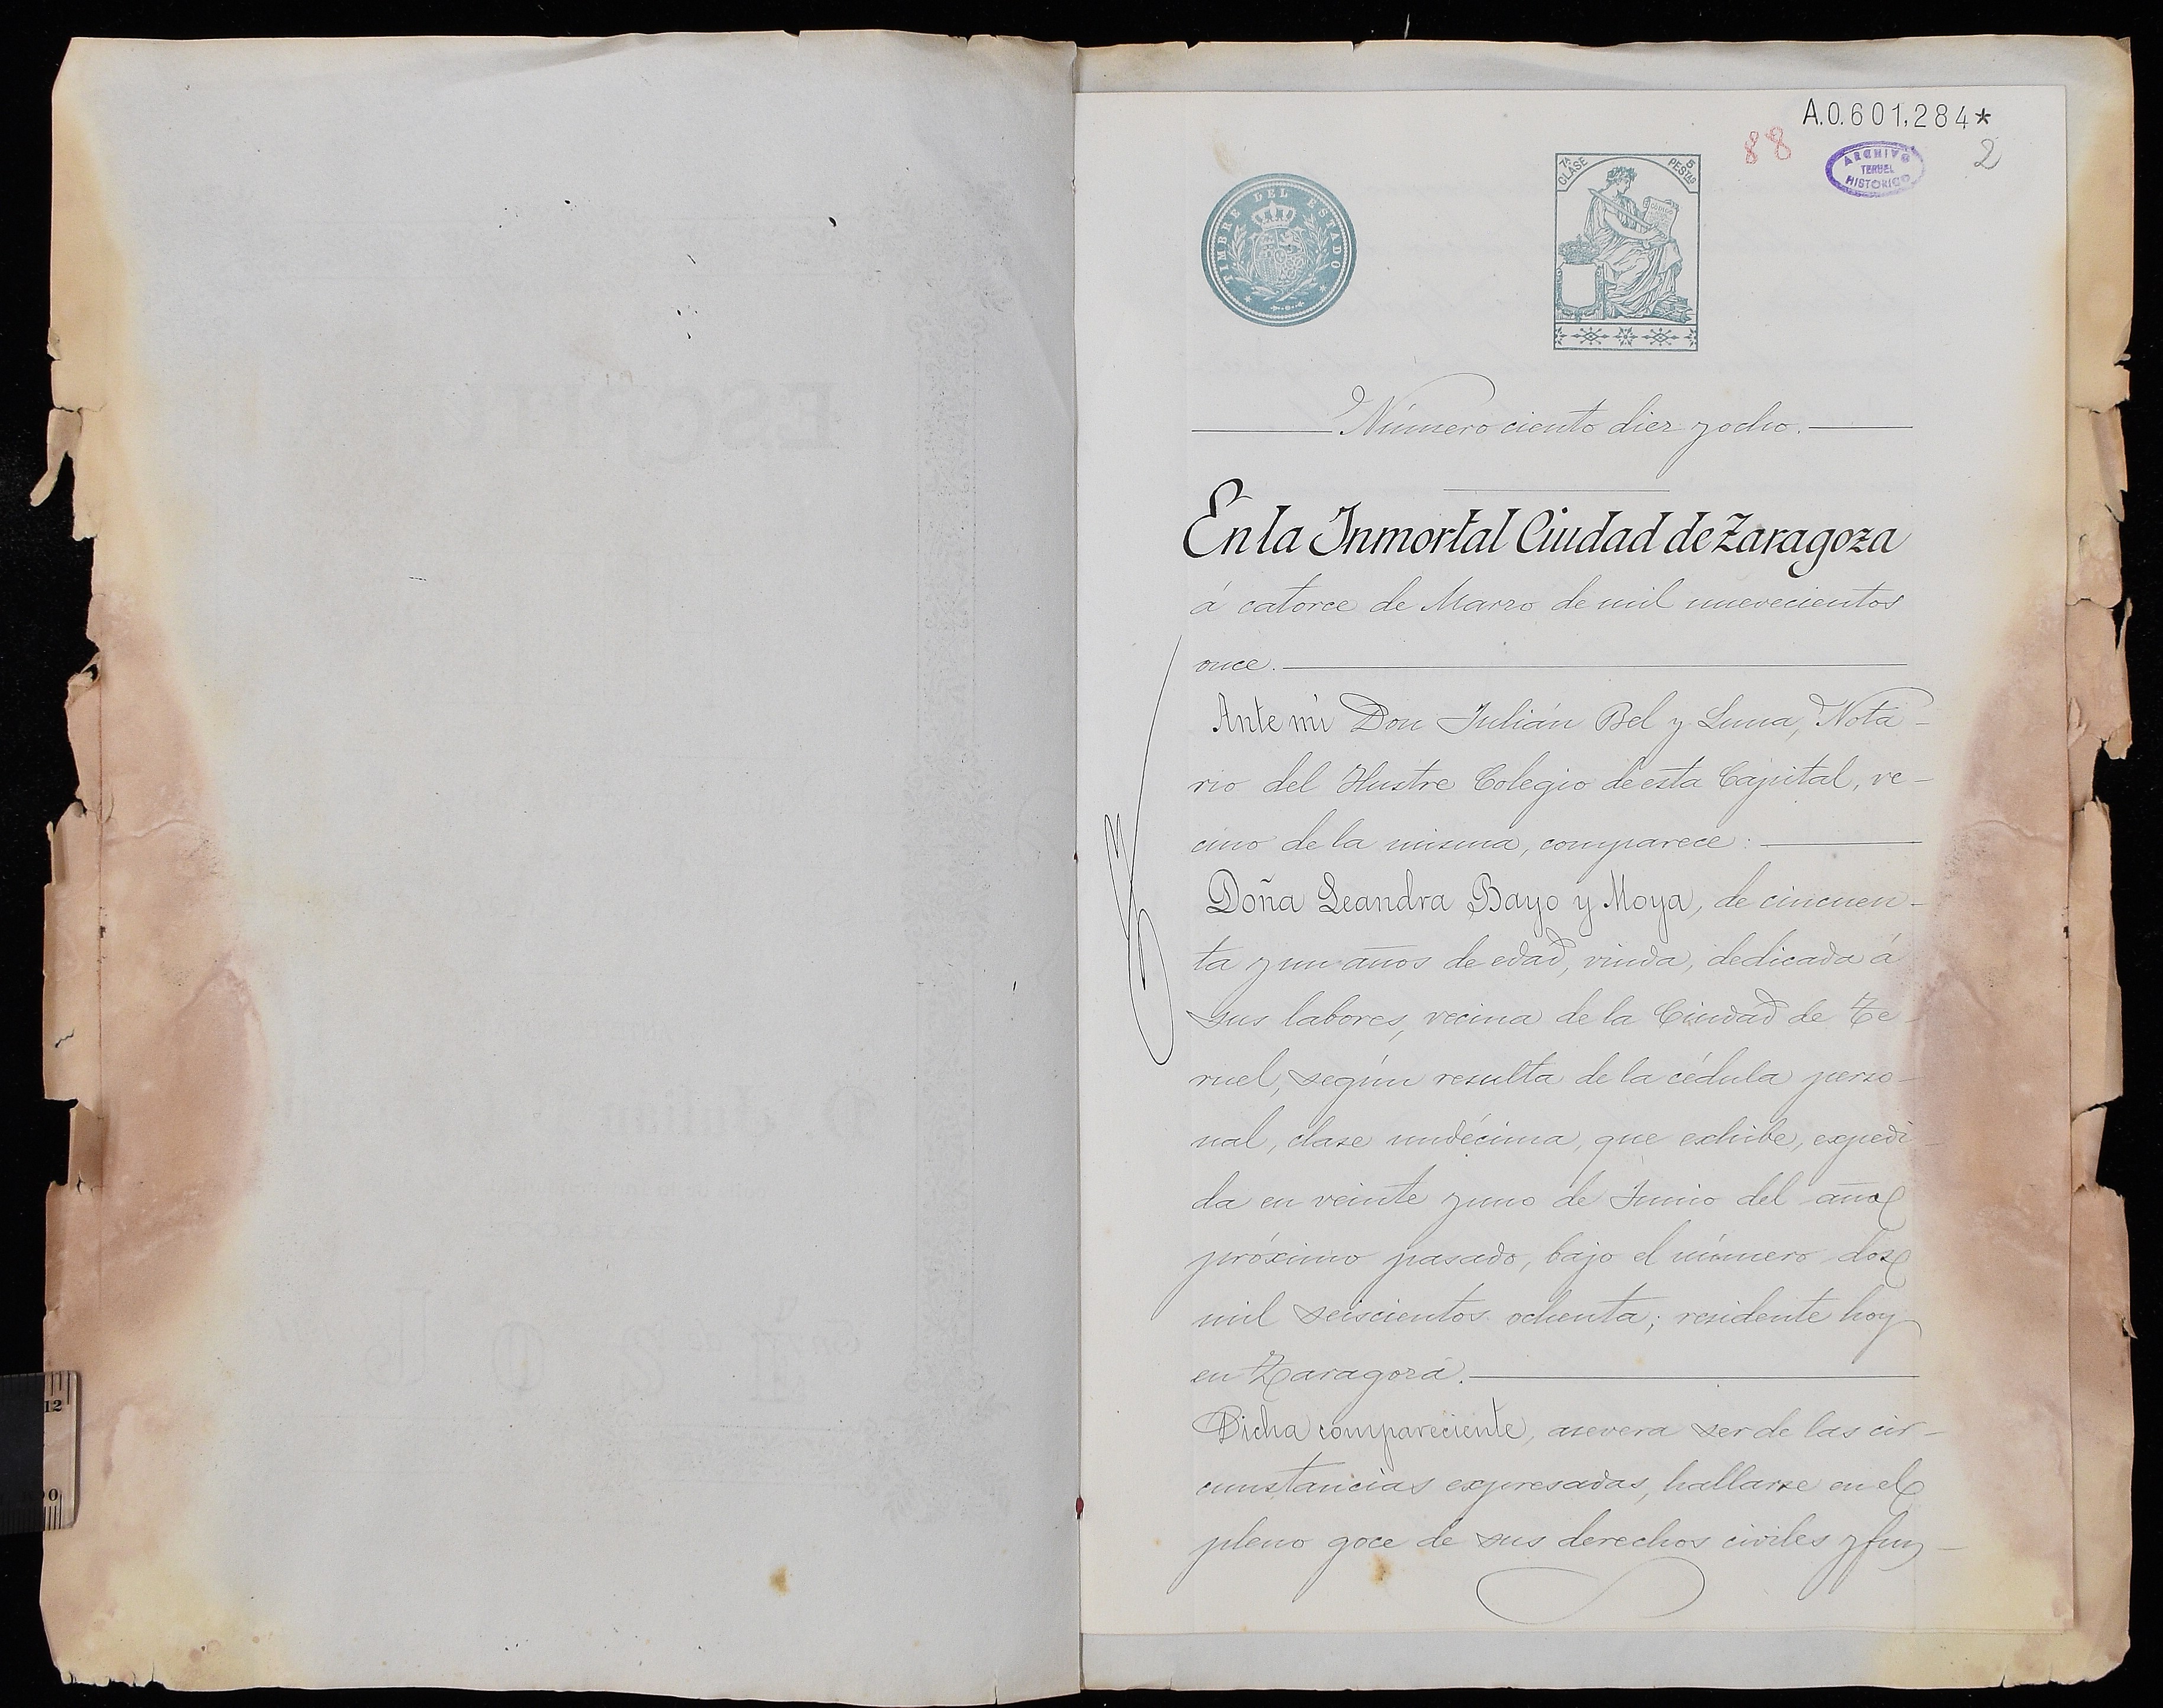 A.0.601,284*
88
2
ARCHIVO
TERUEL
HISTORICO
TIMBRE DEL ESTADO
7ª CLASE
5 PESTAS
Número ciento diez y ocho.
En la Inmortal Ciudad de Zaragoza
á catorce de Marzo de mil nuevecientos
once.
Ante mi Don Julián Bel y Luna, Nota-
rio del Ilustre Colegio de esta Capital, ve-
cino de la misma, comparece:
Doña Leandra Bayo y Moya, de cincuen-
ta y un años de edad, viuda, dedicada á
sus labores, vecina de la Ciudad de Te-
ruel, según resulta de la cédula perso-
nal, clase undécima, que exhibe, expedi-
da en veinte y uno de Junio del año
próximo pasado, bajo el número dos
mil seiscientos ochenta; residente hoy
en Zaragoza.
Dicha compareciente, asevera ser de las cir-
cunstancias expresadas, hallarse en el
pleno goce de sus derechos civiles y juz-
12
0